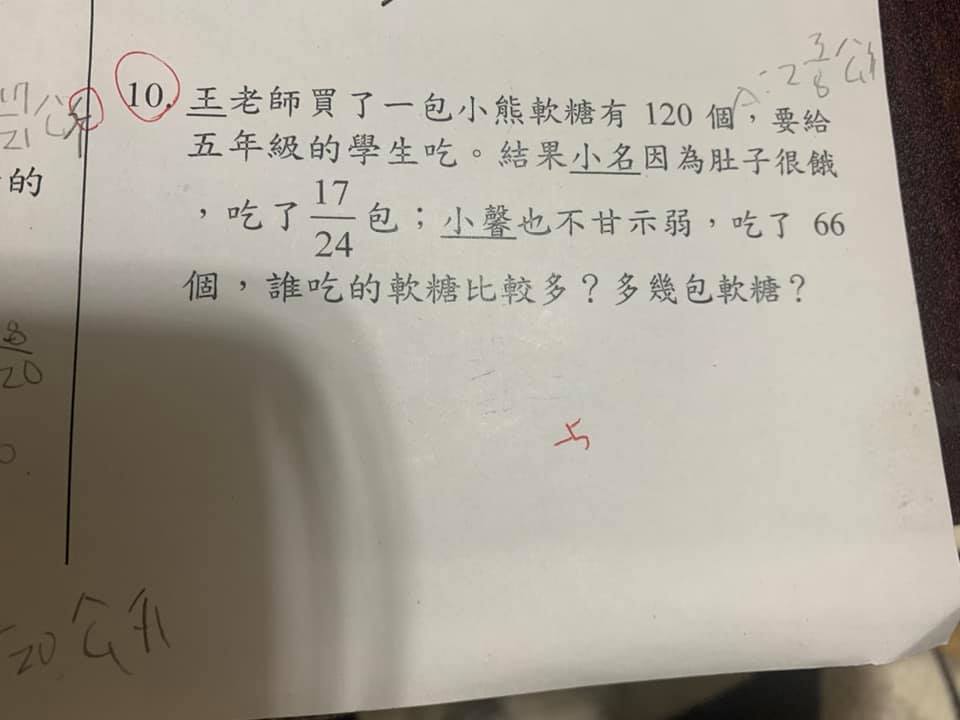 10. 王老師買了一包小熊軟糖有 120 個，要給
五年級的學生吃。結果小名因為肚子很餓
，吃了 17/24 包；小馨也不甘示弱，吃了 66
個，誰吃的軟糖比較多？多幾包軟糖？
A：2 3/8 公升
17/21 公升
的
8/20
20 公升